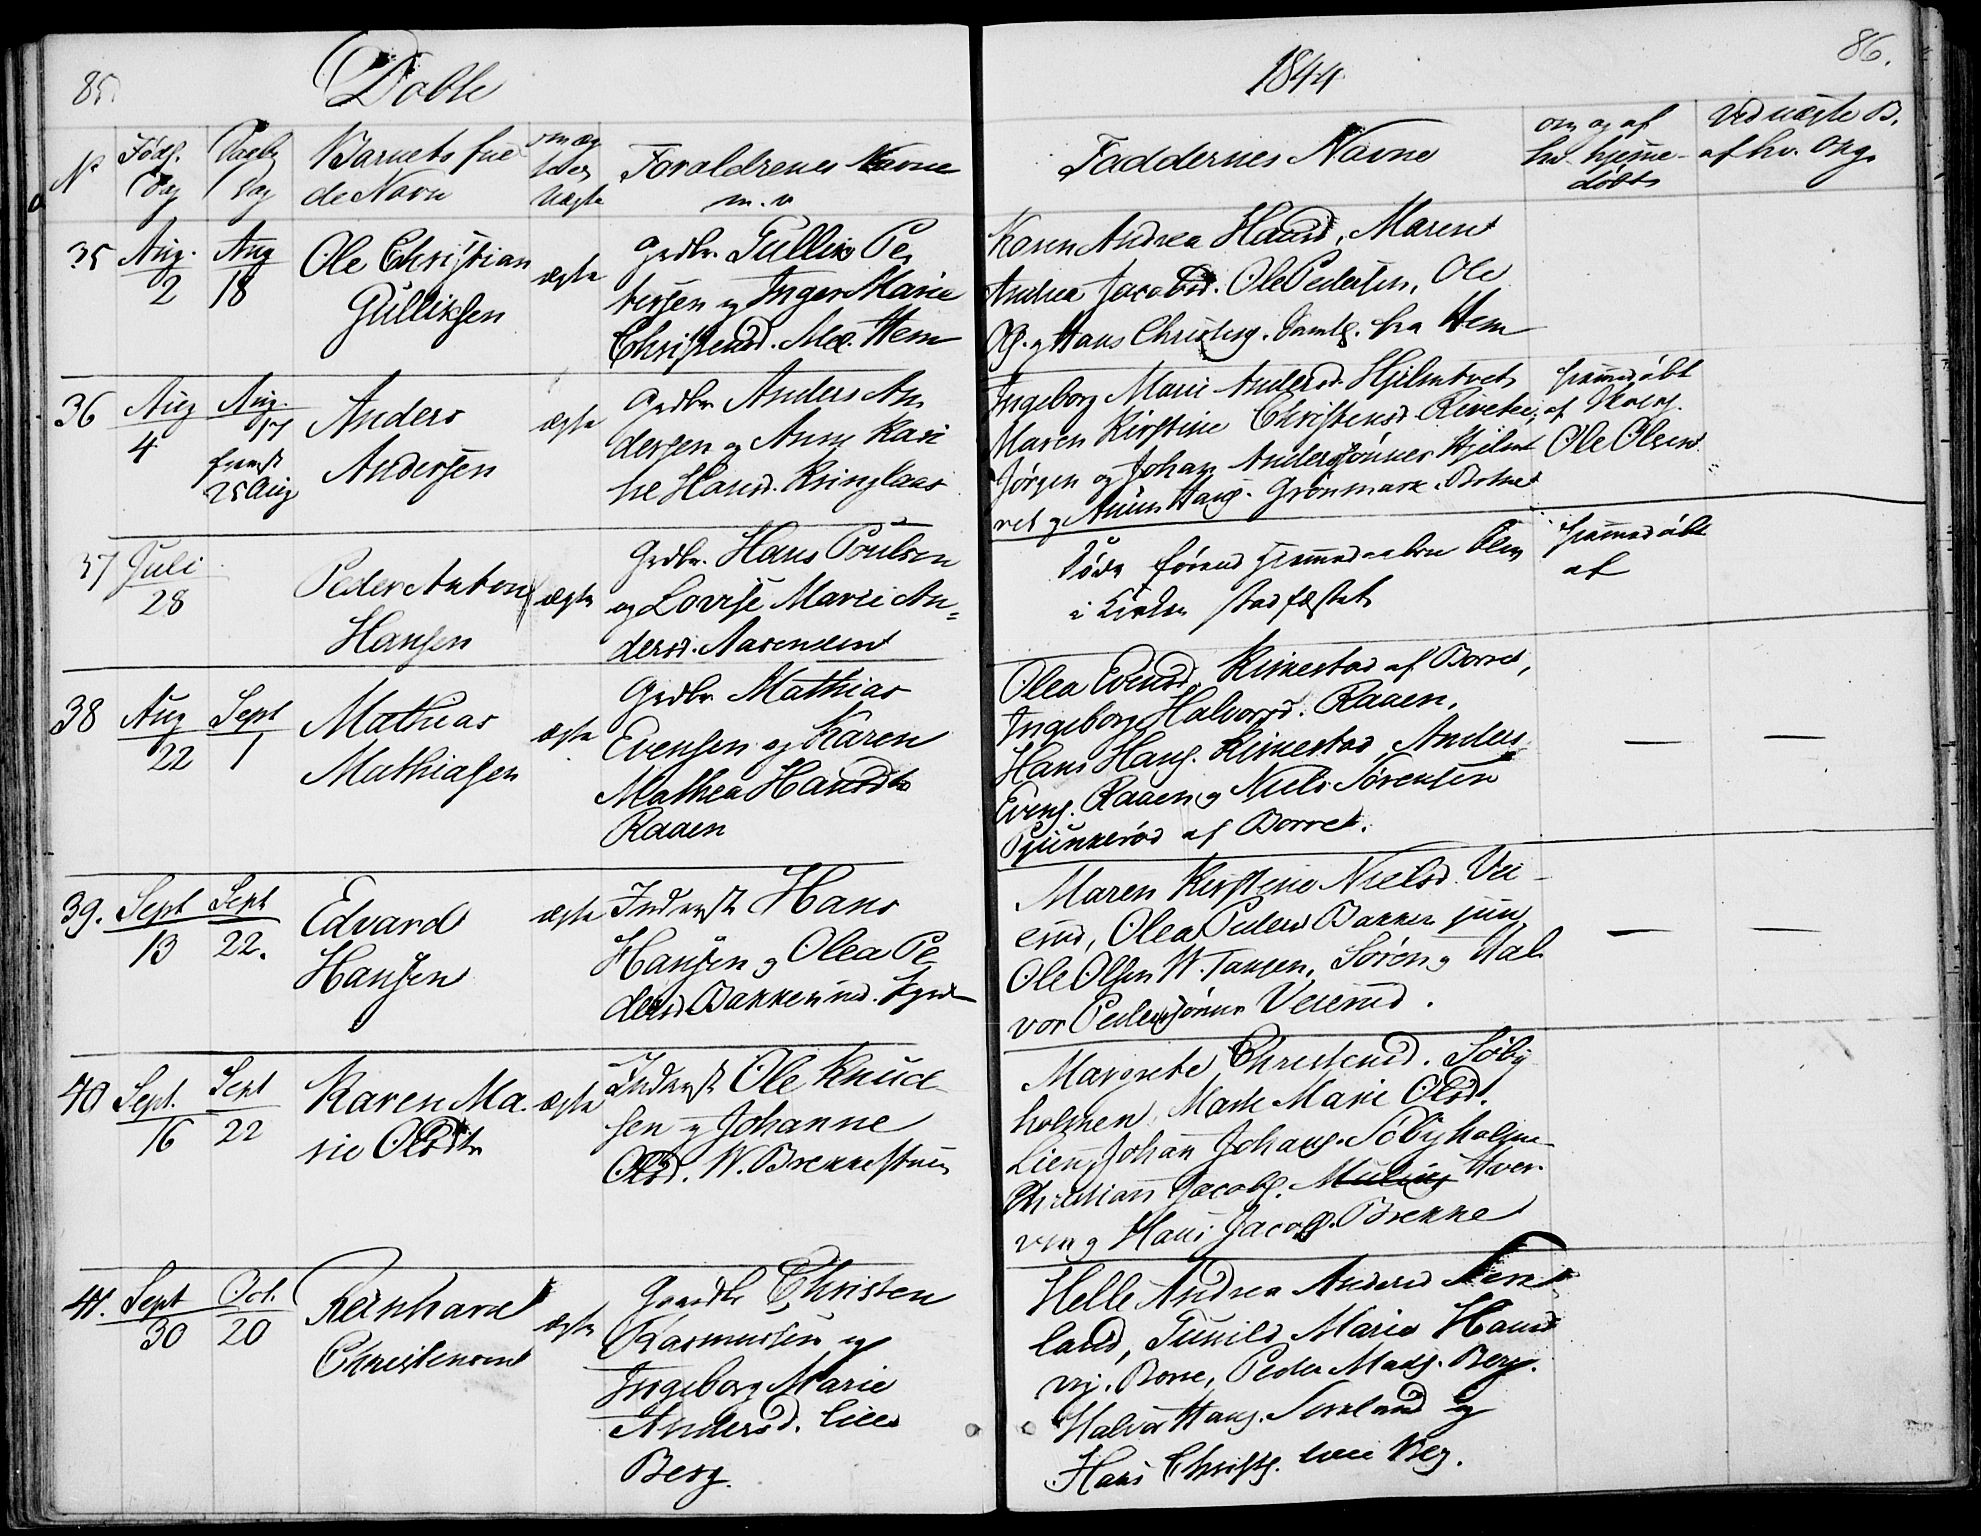 85.
Døbte
1844
86.
No
Føds.
Dag
Daabs
Dag
Barnets fuł
de Navn
om æg
te ell
uægte
Forældrenes Navne
m. v
Faddernes Navne
om og af
hv. hjemme-
døbt
Ved uægte B.
af hv. Opg.
35
Aug.
2
Aug
18
Ole Christian
Gulliksen
ægte
Grdbr. Gullik Pe
dersen og Inger Marie
Christensd. Hem
Karen Andrea Hansd, Maren
Andrea Jacobsd. Ole Pedersen, Ole
Ols. og Hans Christens. samtl. fra Hem
36
Aug
4
Aug.
17
fremst
25 Aug
Anders
Andersen
ægte
Grdbr Anders An
dersen og Anne Kari
ne Hansd.
Ingeborg Marie Andersd. Hjelmtvet
Maren Kirstine Christensd.
Jørgen og Johan Anderssønner Hjelmt
vet og Hans. Grønmark. Botne
hjemmedøbt
af
Ole Olsen
37
Juli
28
Peder Anton
Hansen
ægte
Grdbr. Hans Poulsen
og Lovise Marie An=
dersd.
Døde førend Hjemmedaaben blev
i Kirken stadfæstet
hjemmedøbt
af
38
Aug
22
Sept
1
Mathias
Mathiasen
ægte
Grdbr Mathias
Evensen og Karen
Mathea Hansdtr
Raaen
Olea Evensd. Rimestad af Borre,
Ingeborg Halvorsd. Raaen.
Hans Hans. Rimestad, Anders
Evens. Raaen og Niels Sørensen
af Borre.
— —
39.
Sept
13
Sept
22.
Edvard
Hansen
ægte
Inderst Hans
Hansen og Olea Pe
dersd. Bakkerud.
Maren Kirstine Nielsd. Vei-
erud, Olea Pedersd Bakker
Ole Olsen W. Tangen, Søren og Hal
vor Pederssønner Veierud.
— —
40
Sept.
16
Sept
22
Karen Ma
rie Olsdtr
ægte
Inderst Ole Knud
sen og Johanne
Olsd. W. Brekke
Margrete Christensd. Søby
holmen, Marie Olsd.
Lien, Johan Johans. Søbyholme
Christian Jacobs.
ven og Hans Jacobs. Brekke
41.
Sept
30
Oct.
20
Reinhard
Christensen
ægte
Gaardbr Christen
Rasmussen og
Ingeborg Marie
Andersd. Lille
Berg.
Helle Andrea Andersd
land, Gunild Marie Hansd
Borre, Peder Mads. Berg.
Halvor Hans. og
Hans Christs. Lille Berg.